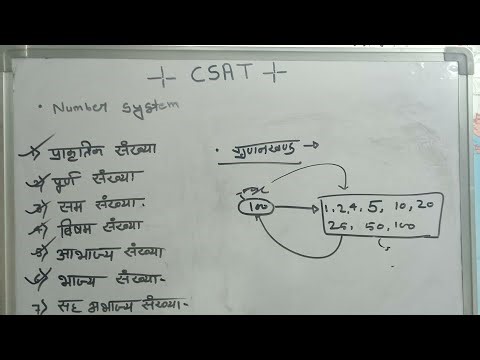 CSAT
Number system
1) प्राकृतिन संख्या
2) पूर्ण संख्या
3) सम संख्या.
4) विषम संख्या
5) आभाज्य संख्या
6) भाज्य संख्या-
7) सह अभाज्य संख्या-
गुणनखण्ड →
100
1, 2, 4, 5, 10, 20
25, 50, 100